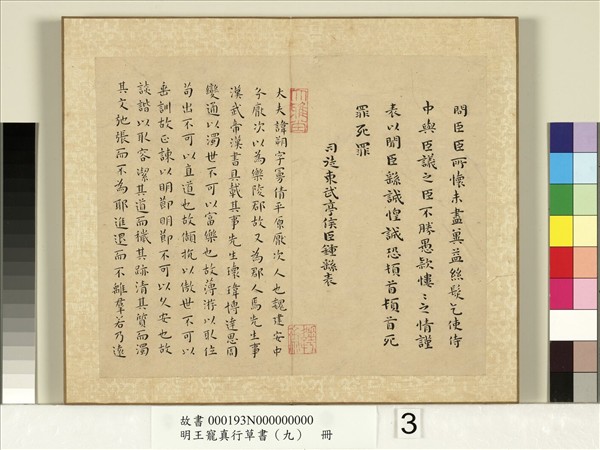 問臣臣所懷未盡冀益絲髮乞使侍
中與臣議之臣不勝愚款慺〻之情謹
表以聞臣繇誠惶誠恐頓首頓首死
罪死罪
司徒東武亭侯臣鍾繇表
大夫諱朔字曼倩平原厭次人也魏建安中
分厭次以為樂陵郡故又為郡人焉先生事
漢武帝漢書具載其事先生瓌瑋博達思周
變通以濁世不可以富樂也故薄游以取位
苟出不可以直道也故頡抗以傲世不可以
垂訓故正諫以明節明節不可以久安也故
詼諧以取容潔其道而穢其跡清其質而濁
其文弛張而不為耶進退而不離羣若乃遠
故書 000193N000000000
明王寵真行草書（九） 冊
3